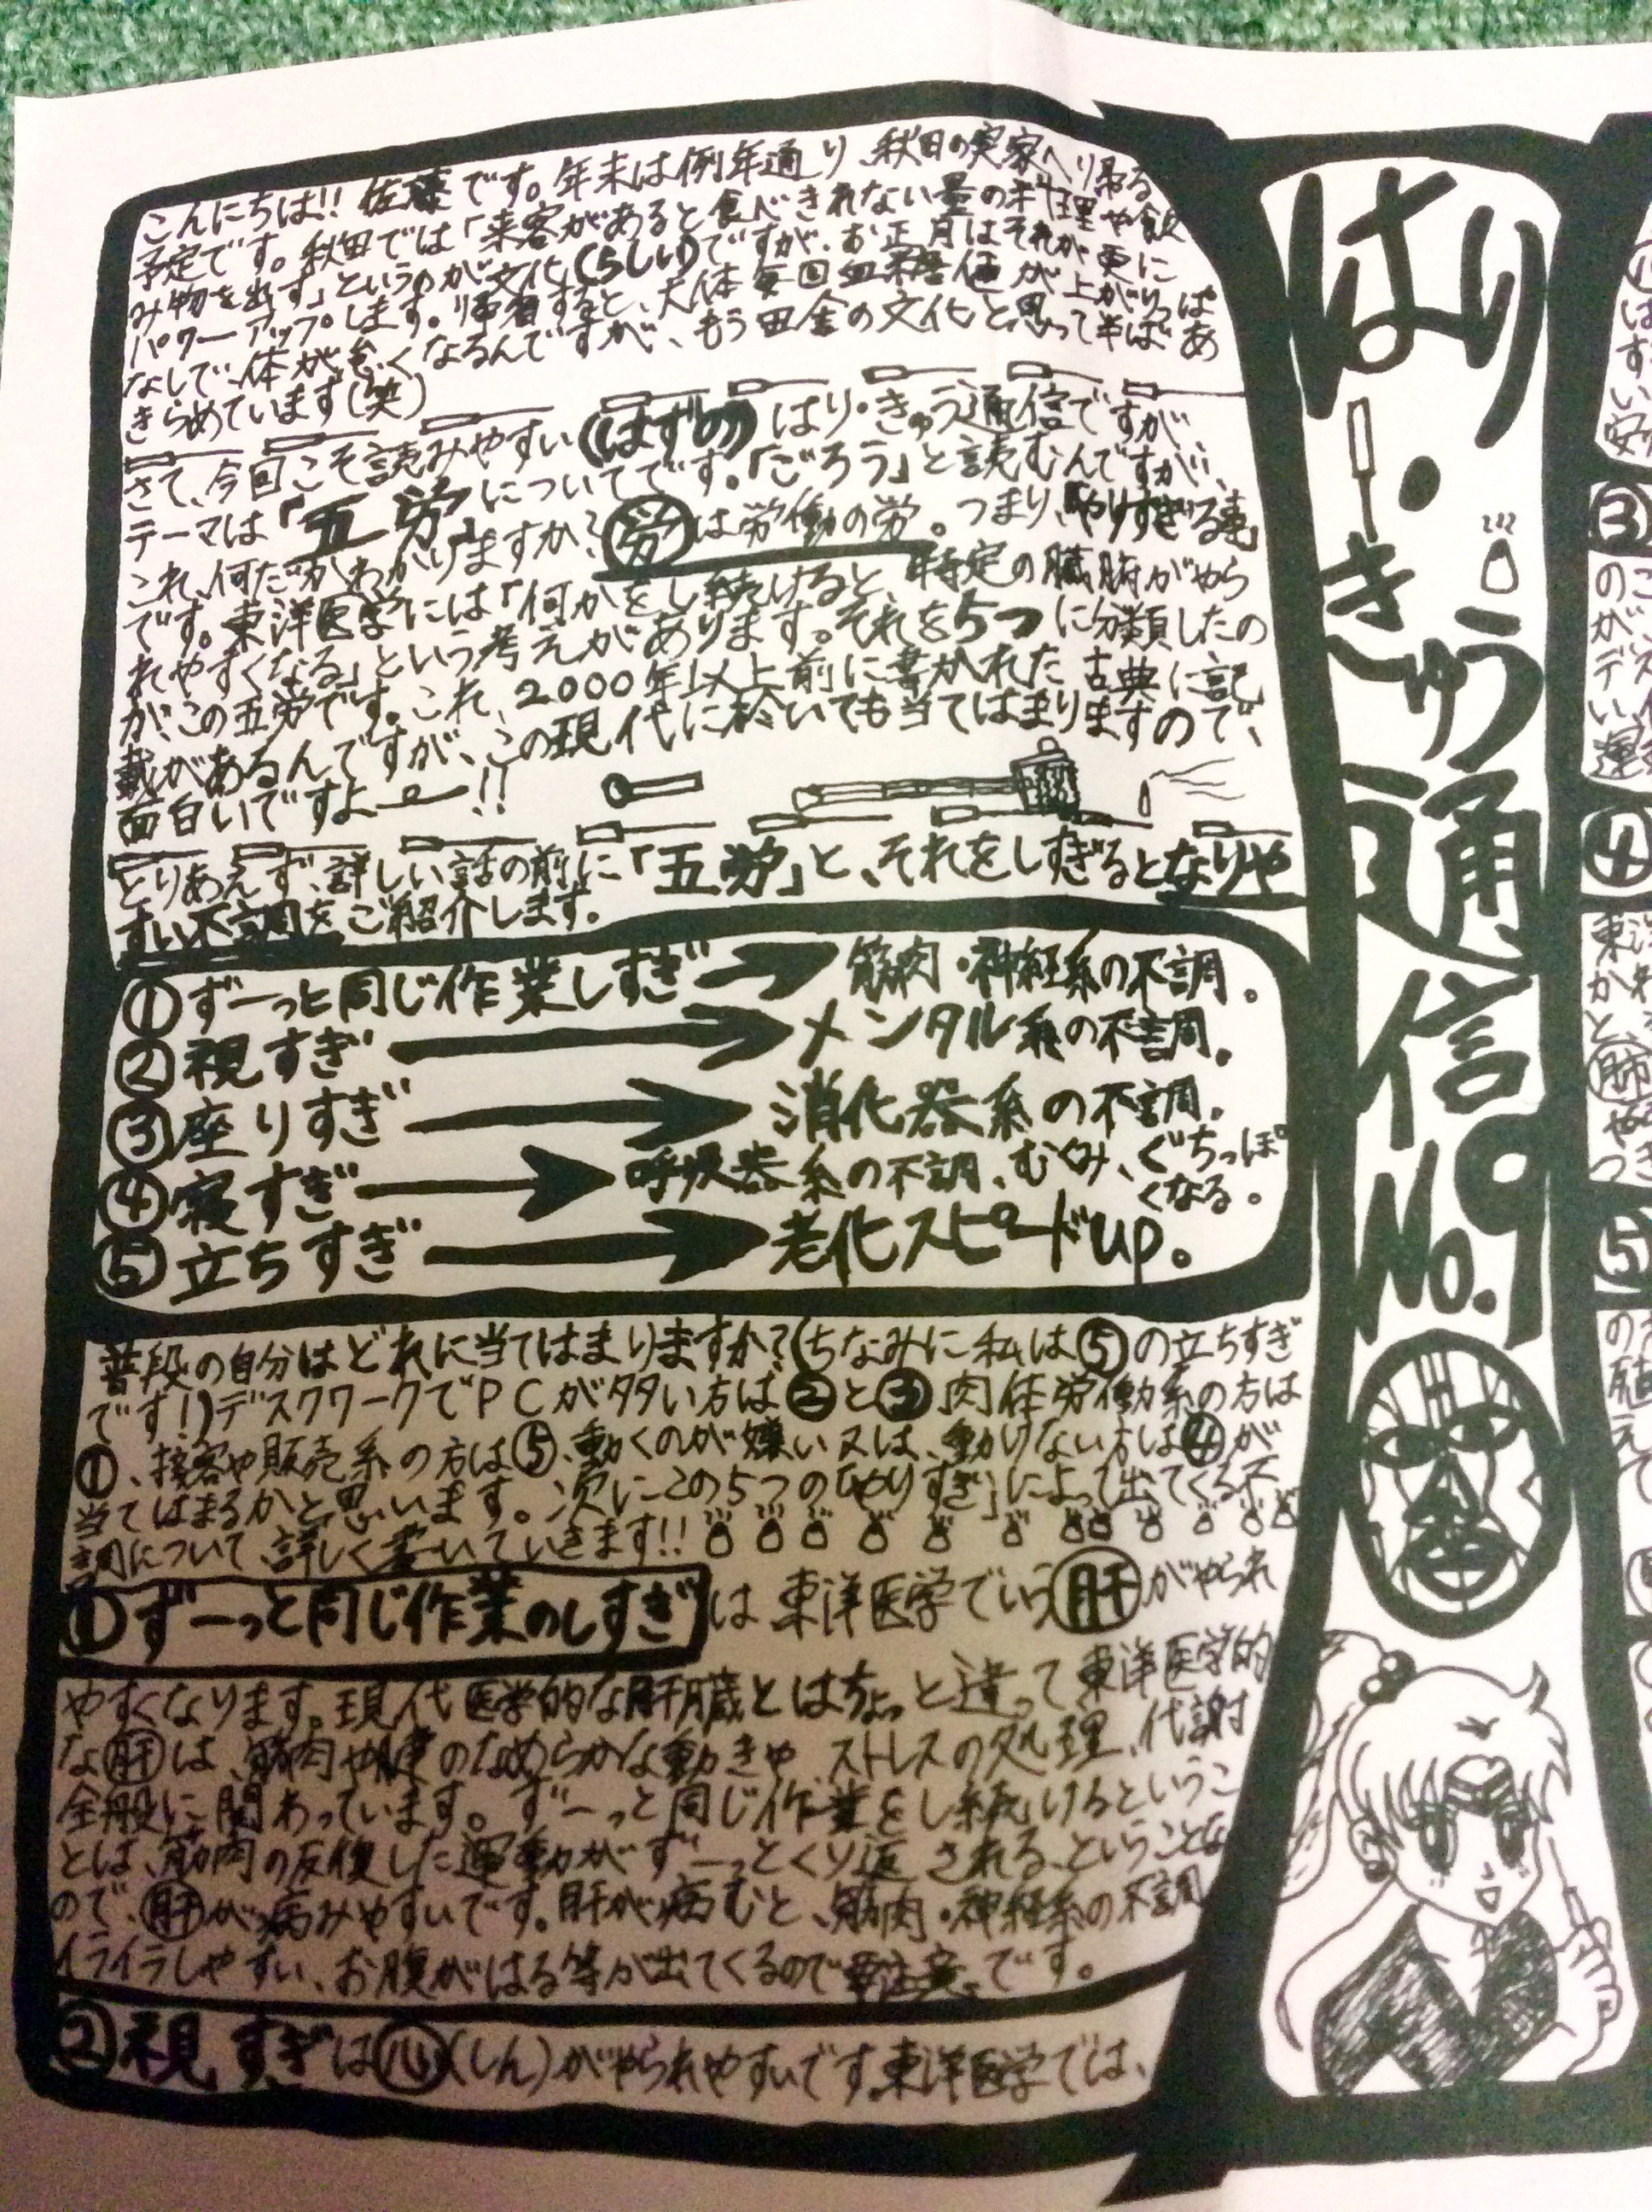 はり・きゅう通信 No.9
こんにちは!! 佐藤です。年末は例年通り、秋田の実家へ帰る
予定です。秋田では「来客があると食べきれない量の料理や飲
み物を出す」というのが文化(らしい)ですが、お正月はそれが更に
パワーアップします。帰省すると、大体毎回血糖値が上がりっぱ
なしで、体が怠くなるんですが、もう田舎の文化と思って半ばあ
きらめています(笑)
さて、今回こそ読みやすい(はずの)はり・きゅう通信ですが、
テーマは「五労」についてです。「ごろう」と読むんですが、
これ、何だかわかりますか?労は労働の労。つまり、「やりすぎる事」
です。東洋医学には「何かをし続けると、特定の臓腑がやら
れやすくなる」という考えがあります。それを5つに分類したの
が、この五労です。これ、2000年以上前に書かれた古典に記
載があるんですが、この現代に於いても当てはまりますので、
面白いですよー!!
とりあえず、詳しい話の前に「五労」と、それをしすぎるとなりや
すい不調をご紹介します。
①ずーっと同じ作業しすぎ→筋肉・神経系の不調。
②視すぎ→メンタル系の不調。
③座りすぎ→消化器系の不調。
④寝すぎ→呼吸器系の不調、むくみ、ぐちっぽ
くなる。
⑤立ちすぎ→老化スピードup。
普段の自分はどれに当てはまりますか?(ちなみに私は⑤の立ちすぎ
です!)デスクワークでPCが多い方は②と③肉体労働系の方は
①、接客や販売系の方は⑤、動くのが嫌い又は、動けない方は④が
当てはまるかと思います。次にこの5つの「やりすぎ」によって出てくる不
調について、詳しく書いていきます!!
①ずーっと同じ作業のしすぎは東洋医学でいう肝がやられ
やすくなります。現代医学的な肝臓とはちょっと違って東洋医学的
な肝は、筋肉や腱のなめらかな動きや ストレスの処理、代謝
全般に関わっています。ずーっと同じ作業をし続けるというこ
とは、筋肉の反復した運動がずーっとくり返される、ということな
ので、肝が病みやすいです。肝が病むと、筋肉・神経系の不調
イライラしやすい、お腹がはる等が出てくるので要注意。です。
②視すぎは心(しん)がやられやすいです。東洋医学では、
③
④
⑤